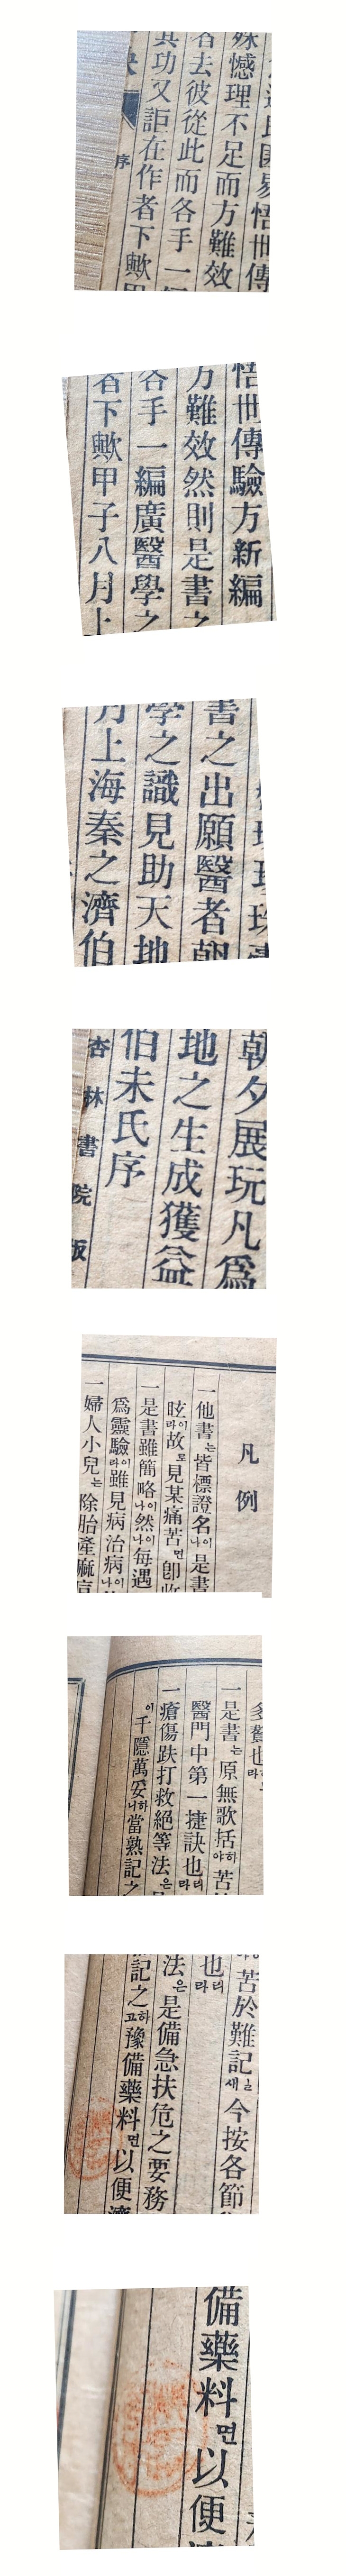 易悟世傳
殊憾理不足而方難效
者去彼從此而各手一
其功又詎在作者下歟
序
悟世傳驗方新編
方難效然則是書之
各手一編廣醫學之
者下歟甲子八月上
書之出願醫者朝
學之識見助天地
月上海秦之濟伯
朝夕展玩凡爲
地之生成獲益
伯未氏序
杏林書院版
凡例
一他書는皆標證名이나是書
眩이라故로見某痛苦면卽收
一是書雖簡略이나然이나每遇
爲靈驗이라雖見病治病이나
一婦人小兒는除胎產痲
多贅也라
一是書는原無歌括하야苦
醫門中第一捷訣也리라
一瘡傷跌打救絕等法은
이千隱萬妥하니當熟記之
苦於難記일세今按各節
也리라
法은是備急扶危之要務
記之하고豫備藥料면以便濟
備藥料면以便